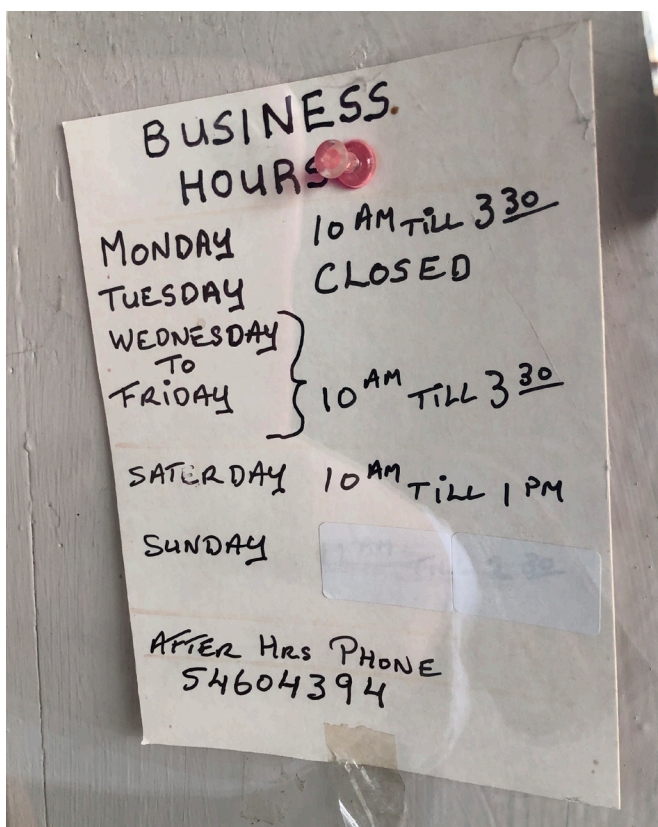 BUSINESS.
HOURS
MONDAY 10 AM TiLL 3 30
TUESDAY CLOSED
WEDNESDAY
TO
FRiDAY 10 AM TiLL 3 30
SATERDAY 10 AM TiLL 1 PM
SUNDAY AM TiLL 2 30
AFTER HRS PHONE
54604394